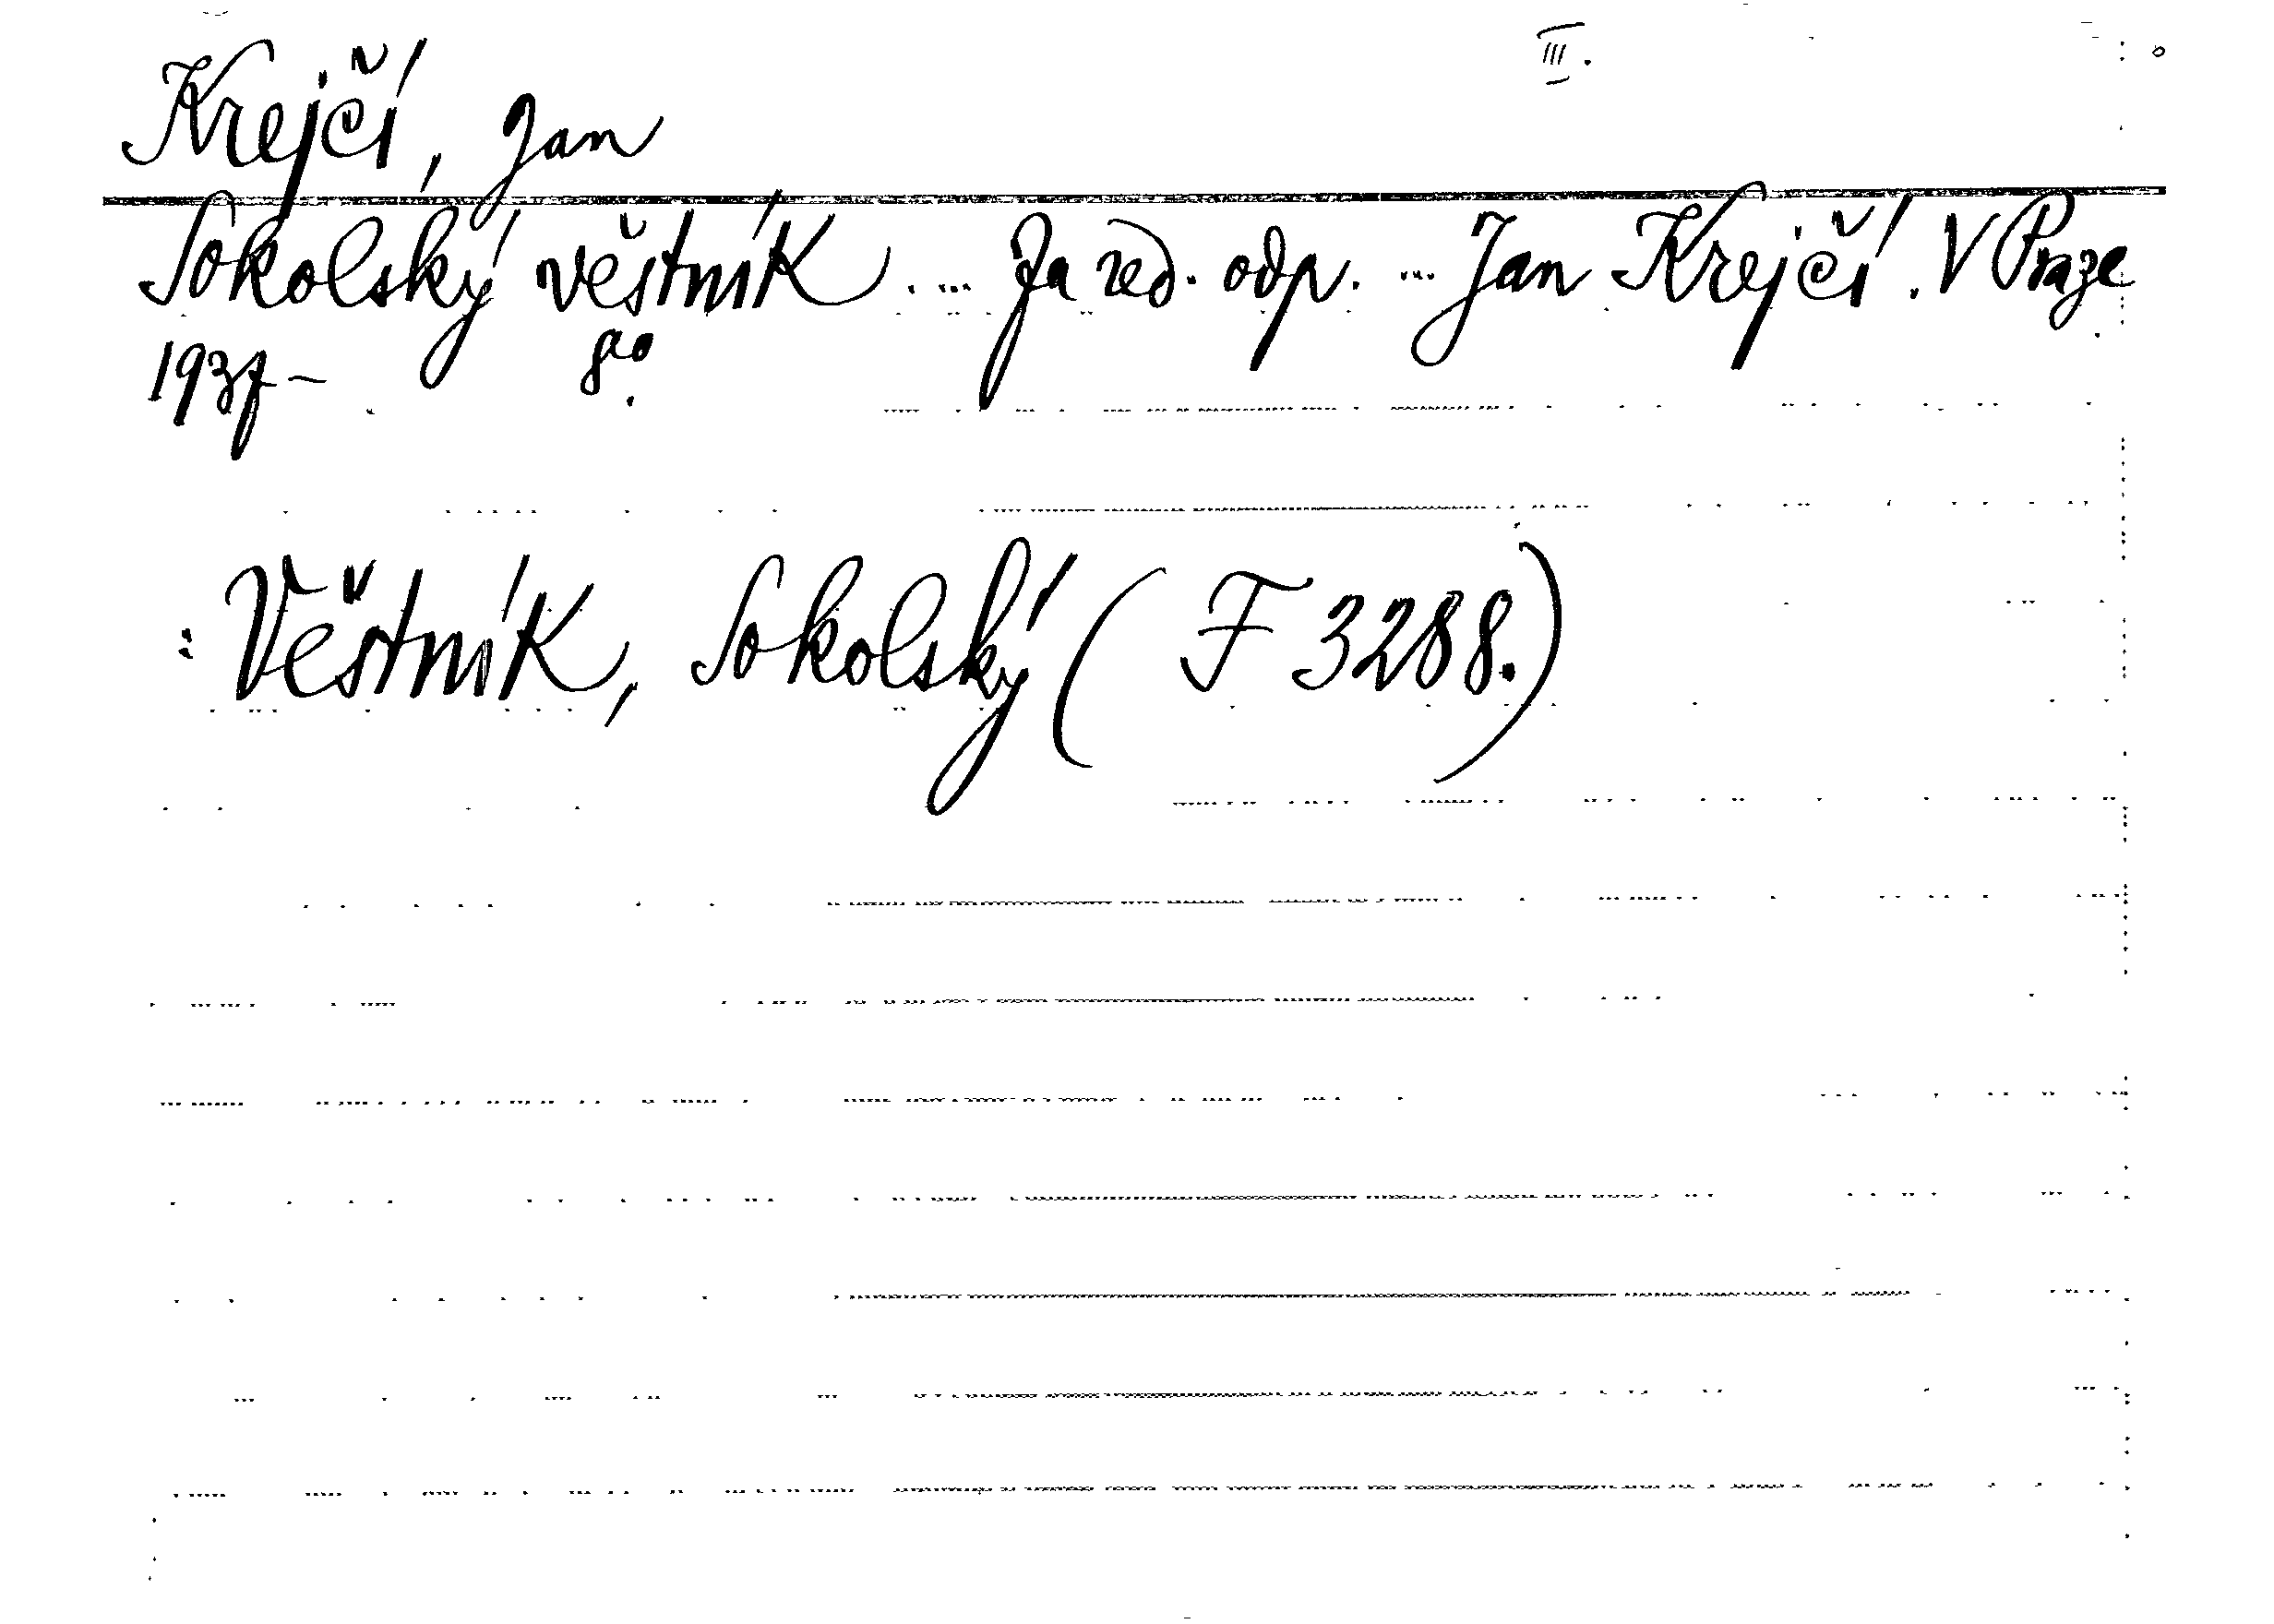 III.
Krejčí, Jan
Sokolský věstník. ... Za red. odp. ... Jan Krejčí. V Praze
1937- 8°.
: Věstník, Sokolský (F 3288.)